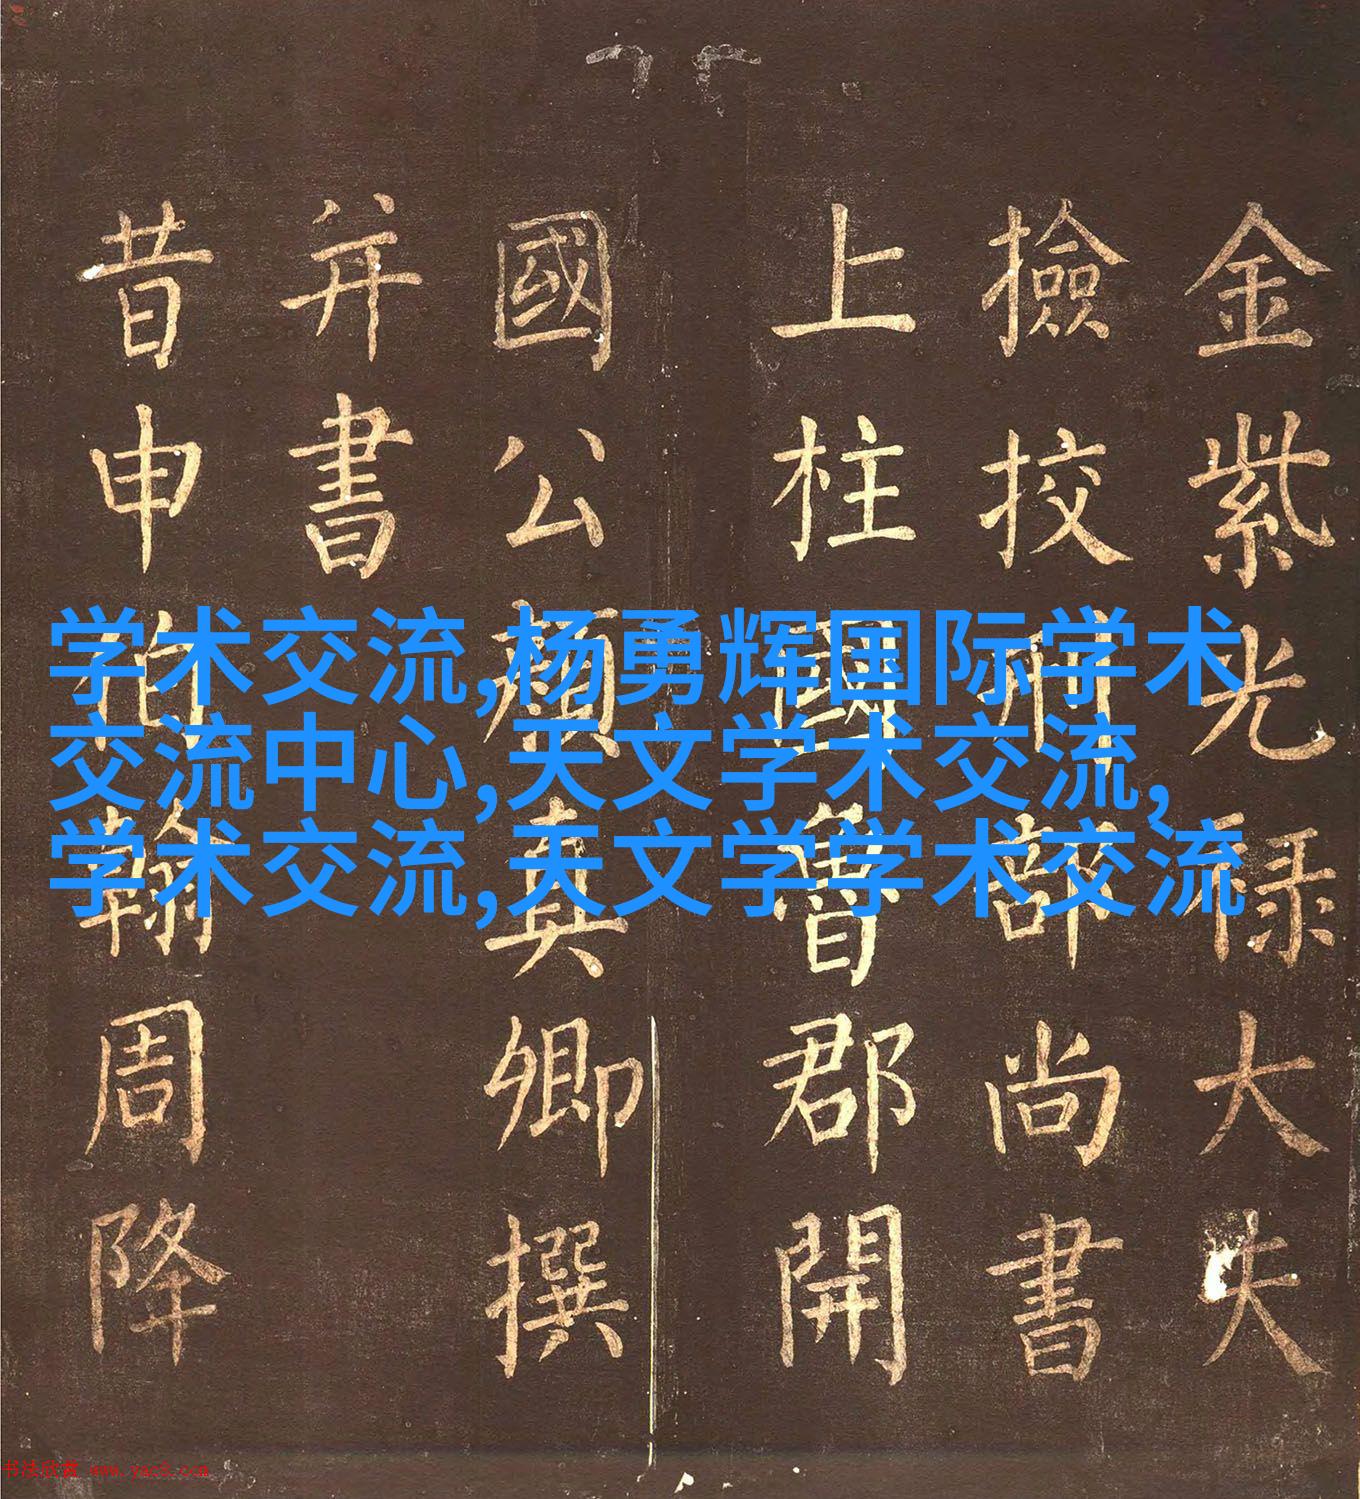 金紫光禄大夫
撿挍刑部尚書
上柱國魯郡開
國公顏真卿撰
并書
昔申伯翰周降
学术交流,杨勇辉国际学术
交流中心,天文学术交流,
学术交流,天文学学术交流
书法欣赏 www.yac8.com